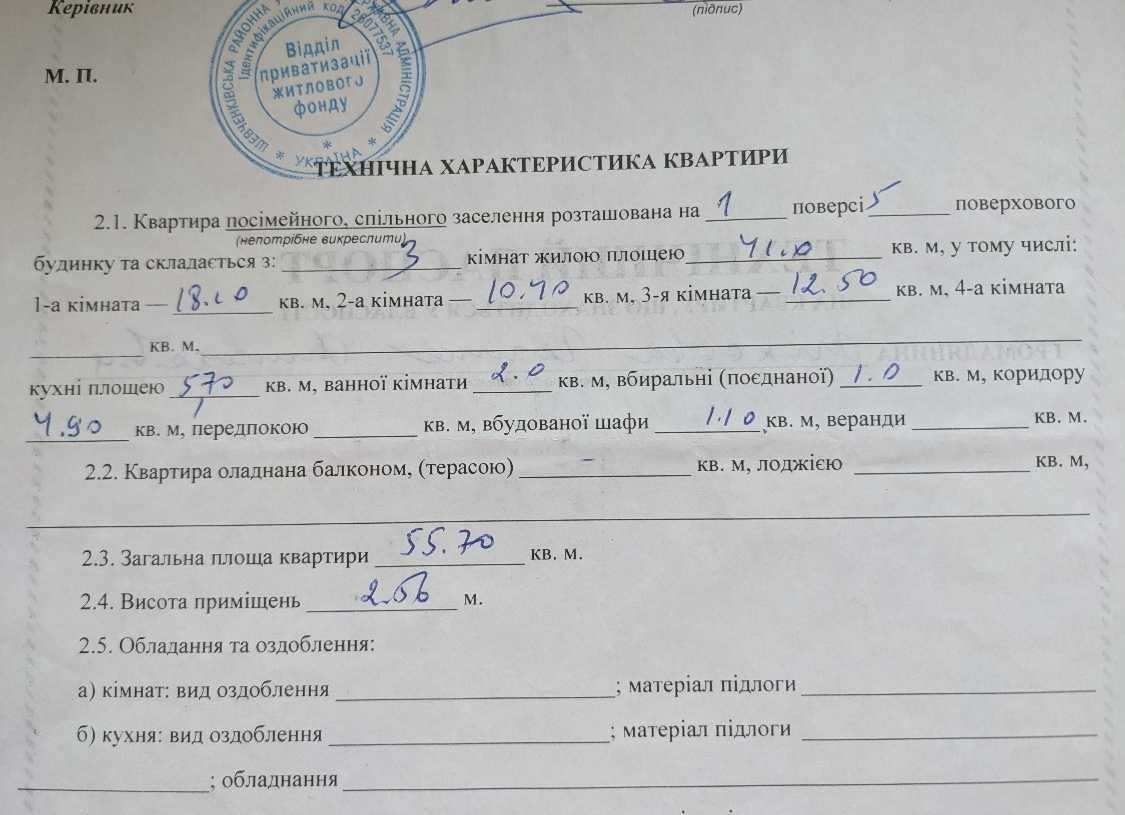 Керівник
(підпис)
М. П.
ШЕВЧЕНКІВСЬКА РАЙОННА ДЕРЖАВНА АДМІНІСТРАЦІЯ * УКРАЇНА *
Ідентифікаційний код 26077537
Відділ
приватизації
житлового
фонду
*
ТЕХНІЧНА ХАРАКТЕРИСТИКА КВАРТИРИ
2.1. Квартира посімейного, спільного заселення розташована на 1 поверсі 5 поверхового
(непотрібне викреслити)
будинку та складається з: 3 кімнат жилою площею 41.0 кв. м, у тому числі:
1-а кімната — 18.10 кв. м, 2-а кімната — 10.40 кв. м, 3-я кімната — 12.50 кв. м, 4-а кімната
кв. м.
кухні площею 5,70 кв. м, ванної кімнати 2.0 кв. м, вбиральні (поєднаної) 1.0 кв. м, коридору
4.90 кв. м, передпокою кв. м, вбудованої шафи 1.10 кв. м, веранди кв. м.
2.2. Квартира оладнана балконом, (терасою) – кв. м, лоджією кв. м,
2.3. Загальна площа квартири 55.70 кв. м.
2.4. Висота приміщень 2.56 м.
2.5. Обладання та оздоблення:
а) кімнат: вид оздоблення ; матеріал підлоги
б) кухня: вид оздоблення ; матеріал підлоги
; обладнання